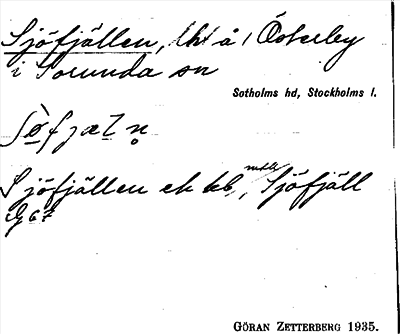 Sjöfjällen, lht å / Österby
i Sorunda sn
Sotholms hd, Stockholms l.
Sjöfjällen ek kb, Sjöfjäll
GÖRAN ZETTERBERG 1935.